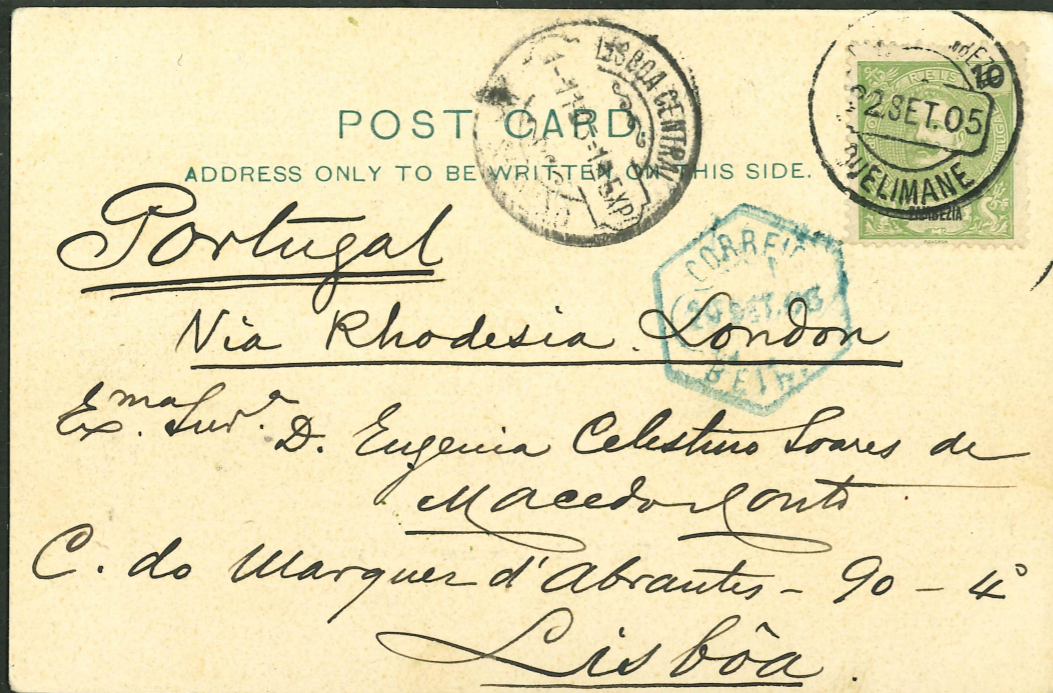 POST CARD
ADDRESS ONLY TO BE WRITTEN ON THIS SIDE.
LISBOA CENTRAL
10
22.SET.05
QUELIMANE
ZAMBEZIA
CORREIO
BEIRA
Portugal
Via Rhodesia London
Exma Snra. D. Eugenia Celestino Soares de
Macedo Couto
C. do Marquez d'Abrantes - 90 - 4º
Lisbôa.